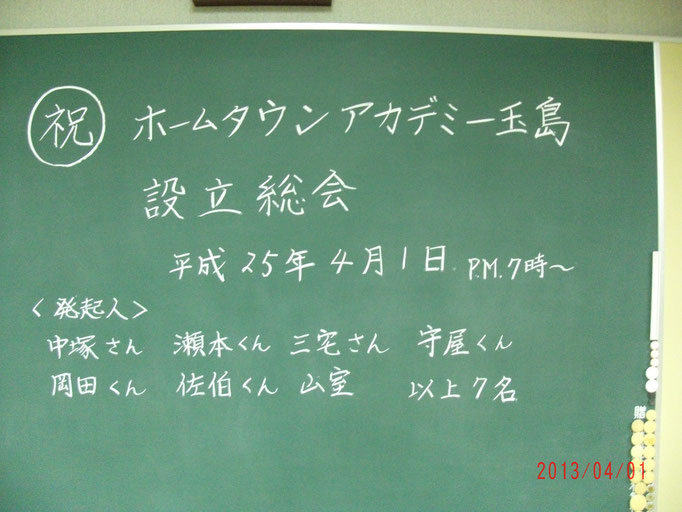 祝 ホームタウンアカデミー玉島
設立総会
平成25年4月1日 P.M.7時〜
<発起人>
中塚さん 瀬本くん 三宅さん 守屋くん
岡田くん 佐伯くん 山室 以上7名
贈
2013/04/01